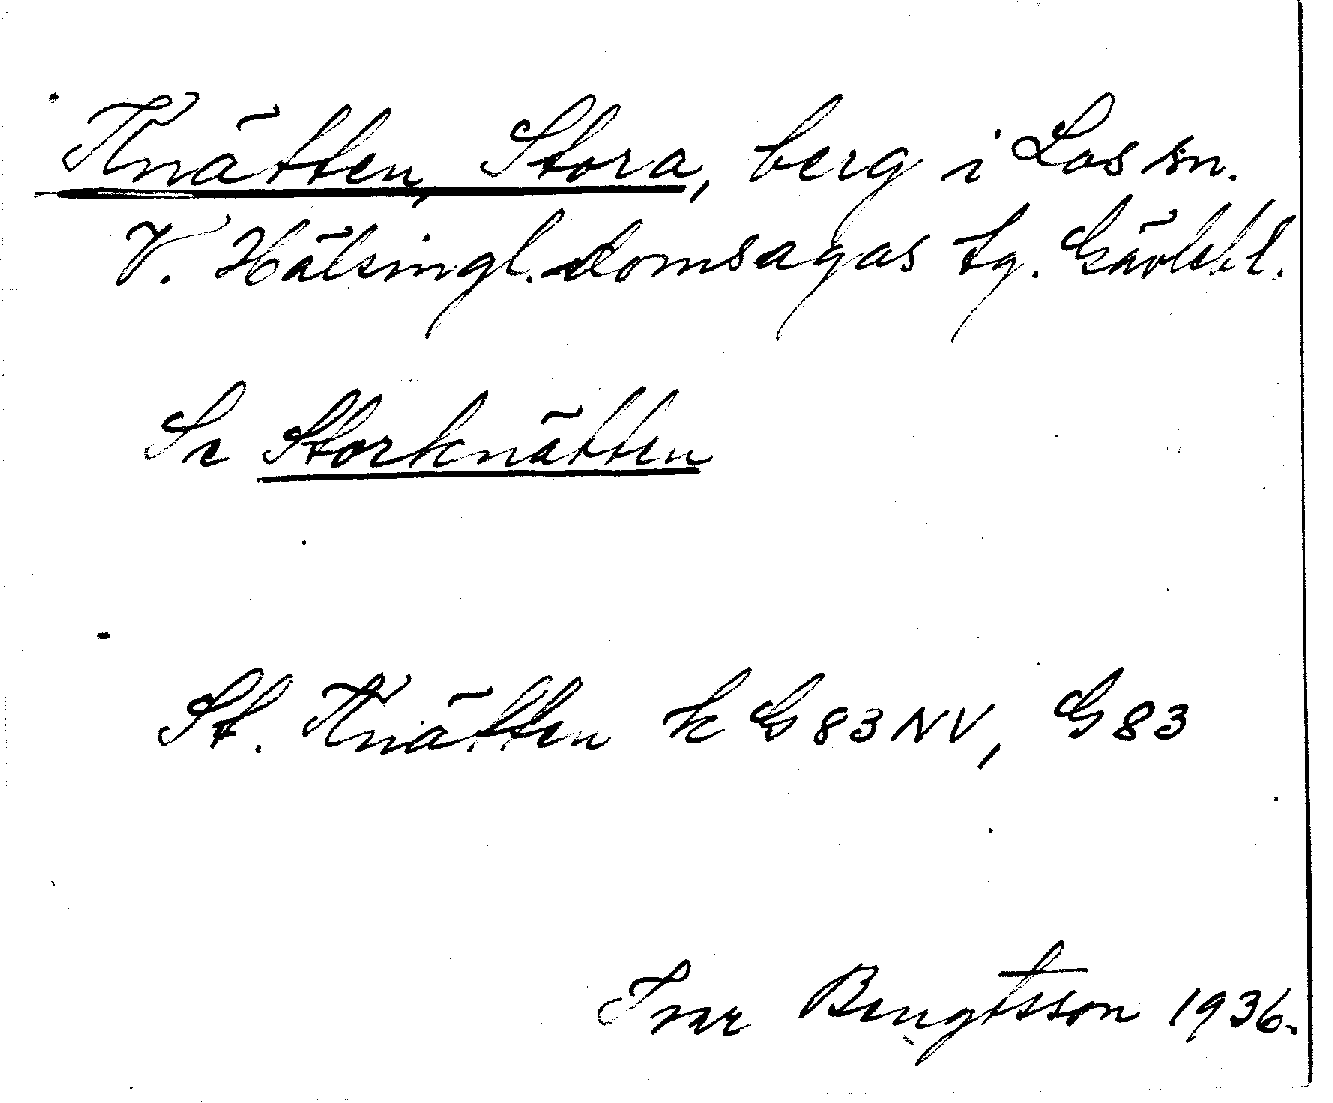 Knätten, Stora, berg i Los sn.
V. Hälsingl. domsagas tg. Gävlebl.
Se Storknätten
St. Knätten k G 83 NV, G 83
Ivar Bengtsson 1936.